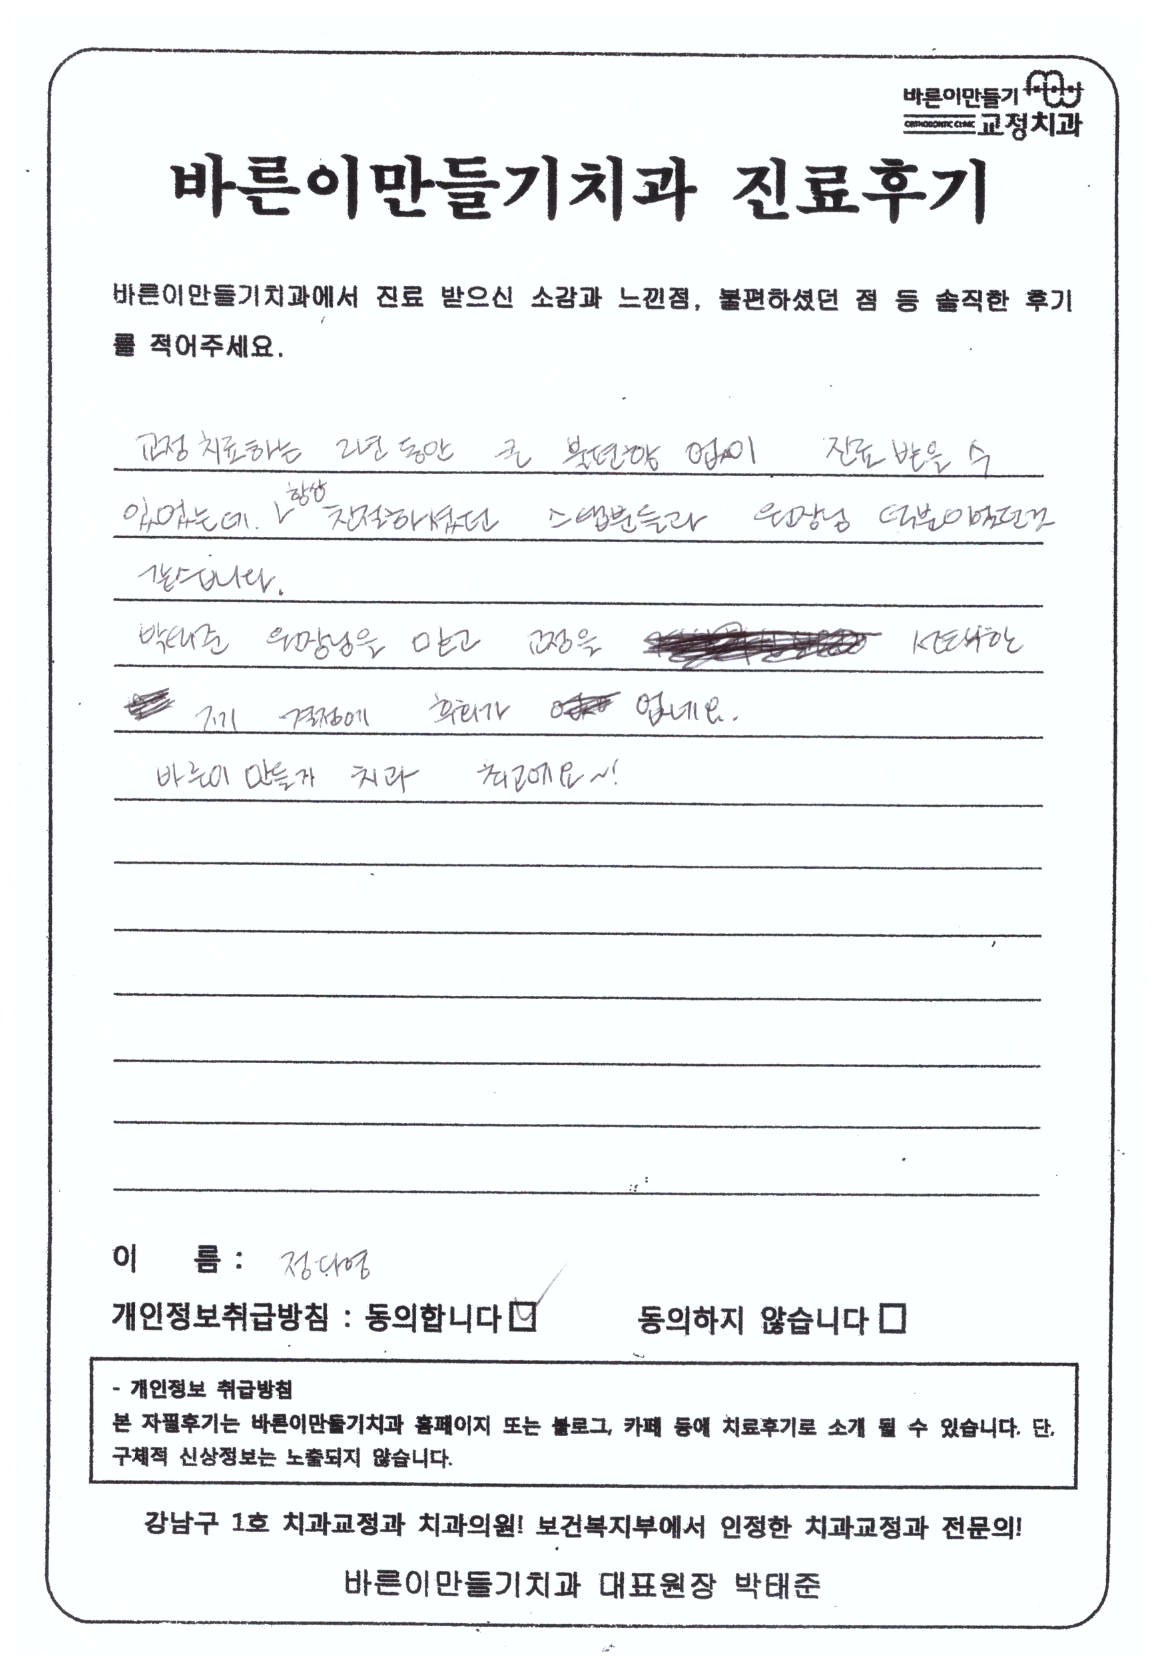 바른이만들기
ORTHODONTIC CLINIC 교정치과
바른이만들기치과 진료후기
바른이만들기치과에서 진료 받으신 소감과 느낀점, 불편하셨던 점 등 솔직한 후기
를 적어주세요.
교정 치료하는 2년 동안 큰 불편함 없이 진료 받을 수
있었는데. 항상 친절하셨던 스탭분들과 원장님 덕분이었던것
같습니다.
박태준 원장님을 믿고 교정을 선택한
결정에 후회가 없네요.
바른이 만들기 치과 최고에요~!
이 름 : 정다영
개인정보취급방침 : 동의합니다 동의하지 않습니다
- 개인정보 취급방침
본 자필후기는 바른이만들기치과 홈페이지 또는 블로그, 카페 등에 치료후기로 소개 될 수 있습니다. 단,
구체적 신상정보는 노출되지 않습니다.
강남구 1호 치과교정과 치과의원! 보건복지부에서 인정한 치과교정과 전문의!
바른이만들기치과 대표원장 박태준